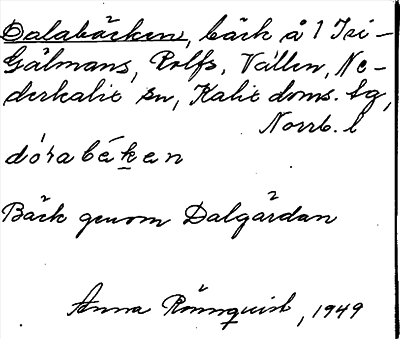 Dalabäcken, bäck å 1 Tri-
Gälmans, Rolfs, Vällen, Ne-
derkalix sn, Kalix doms. tg,
Norrb. l
dórabéken
Bäck genom Dalgärdan
Anna Rönnquist, 1949